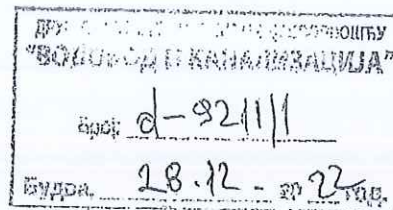 "ВОДОВОД И КАНАЛИЗАЦИЈА"
Број: d-921111
Будва, 28.12- 20 22 год.